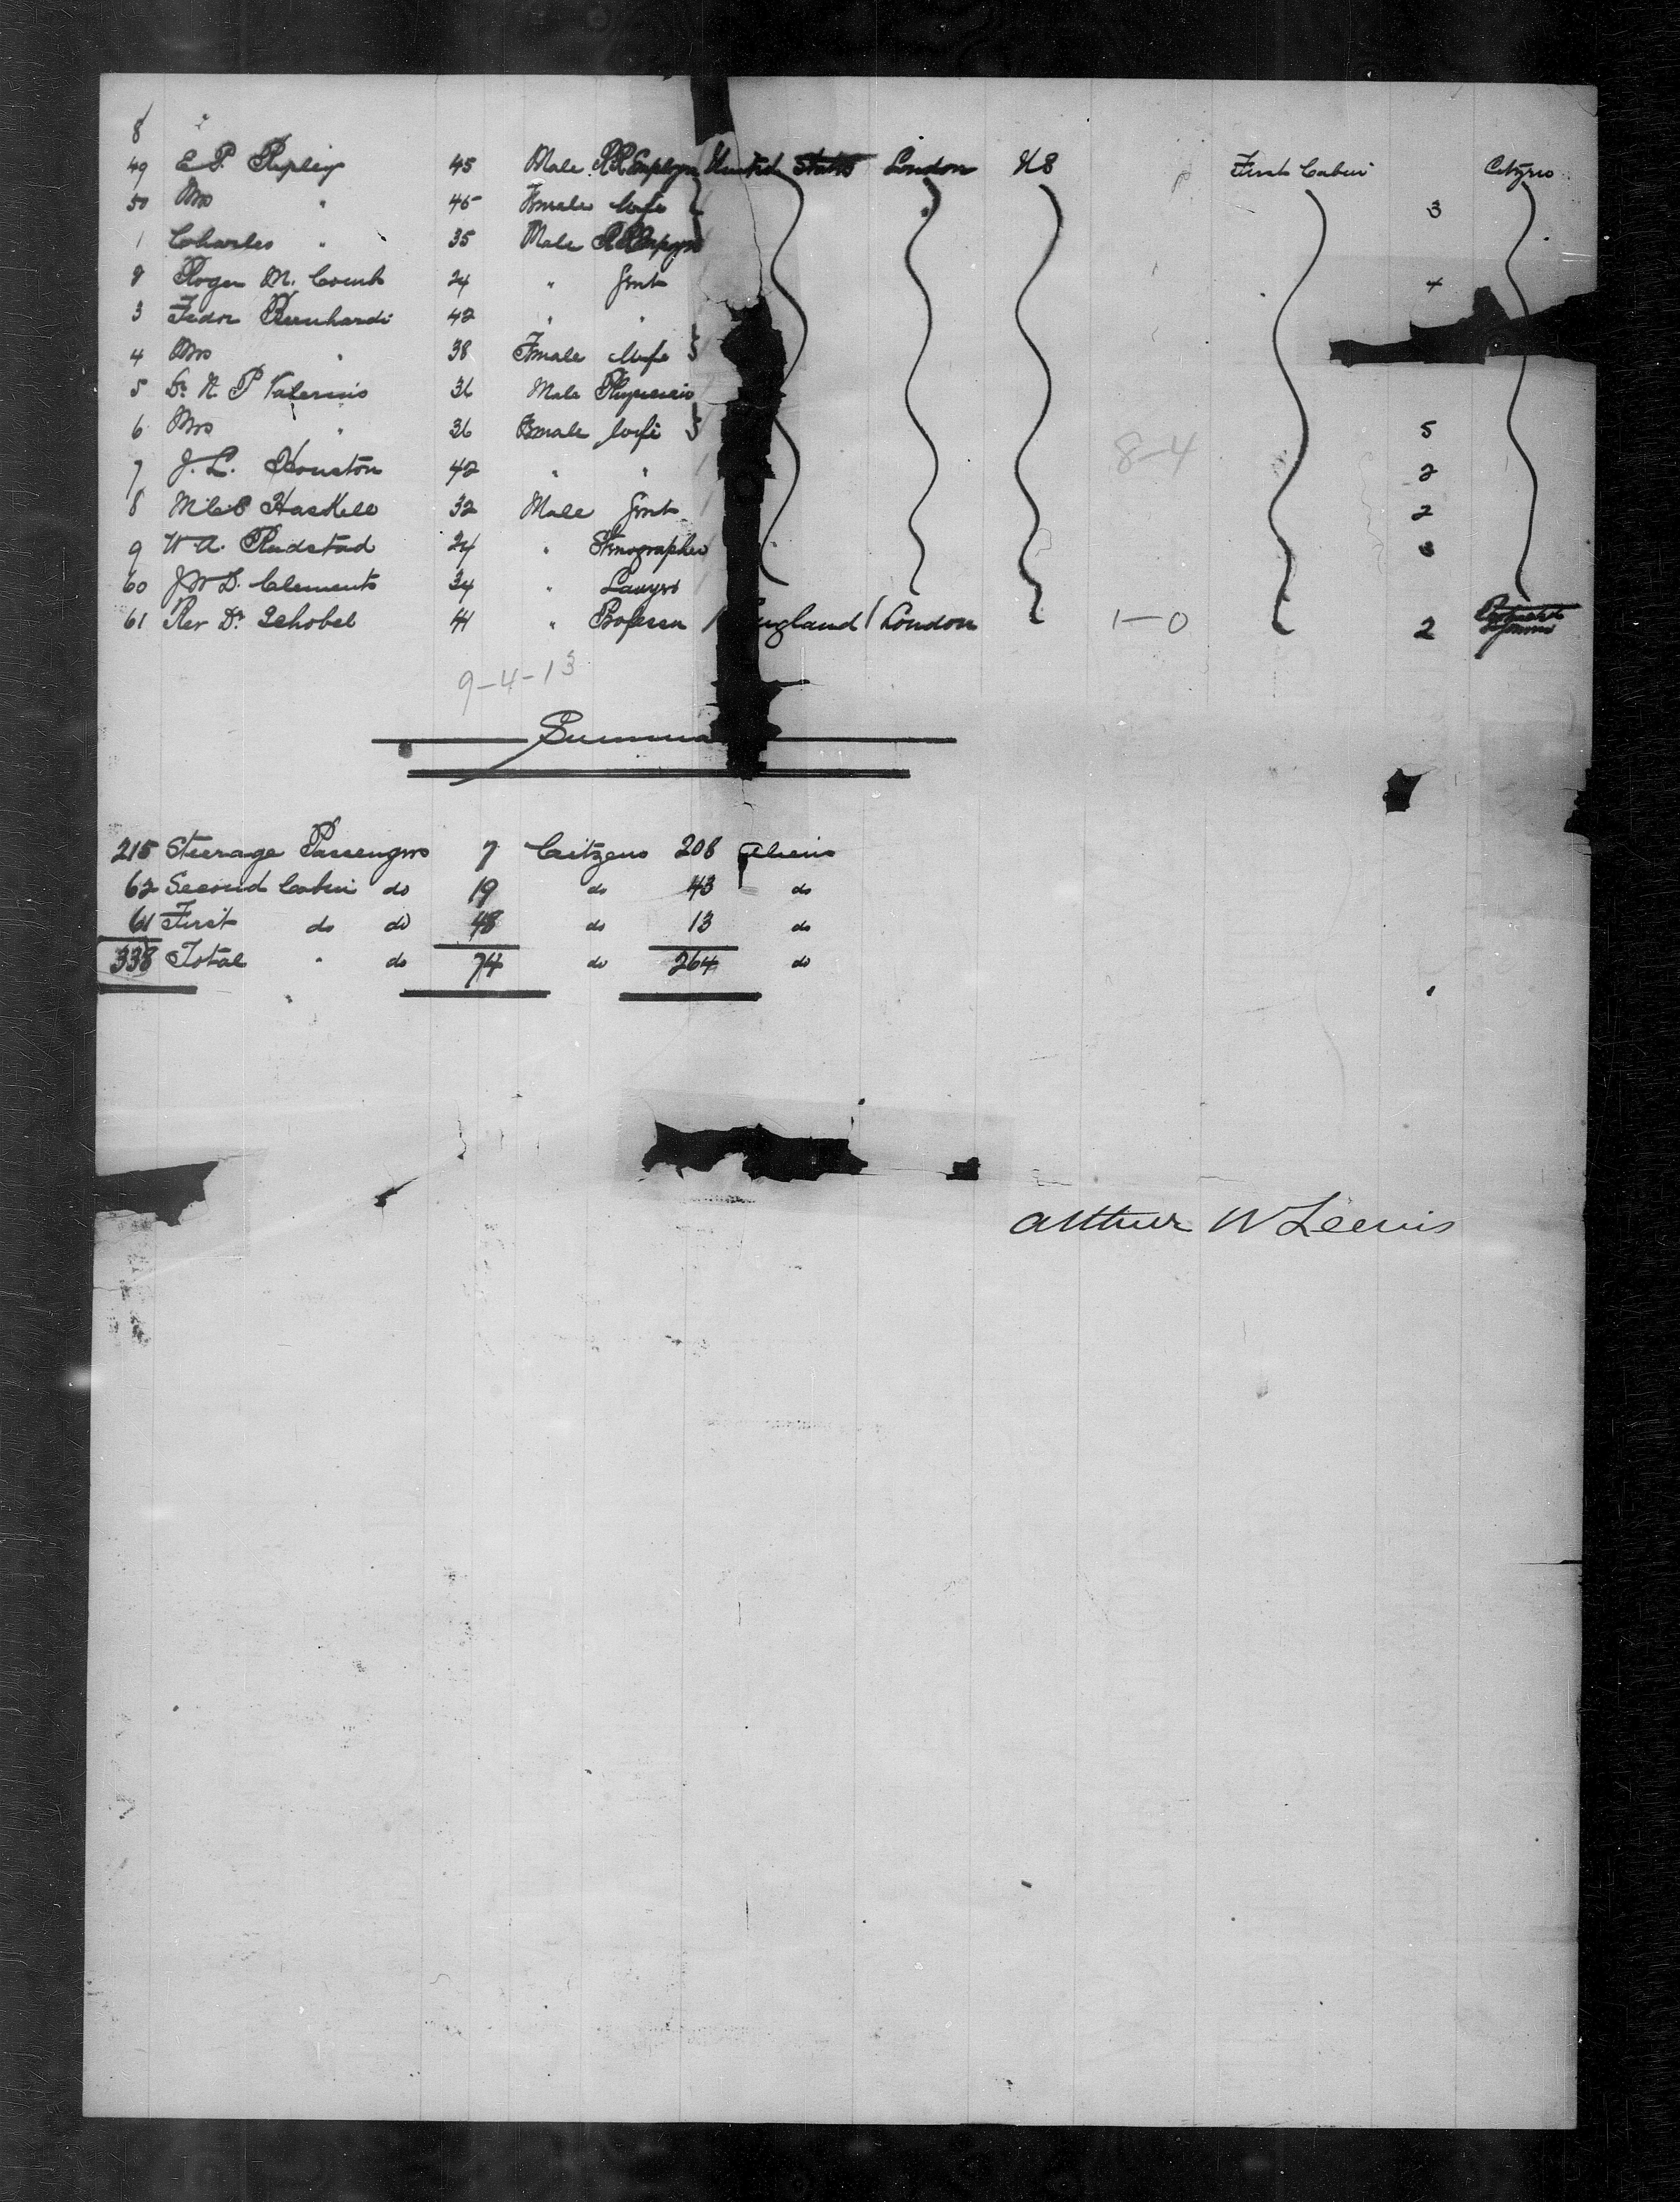 8
49 E. P. Ripley 45 Male R R Employe United States London U S First Cabin Citizen
50 Mrs " 45 Female Wife 3
1 Charles " 35 Male R R
8 Roger M. Comb 24 " Gent 4
3 Fedor 42 " "
4 Mrs " 38 Female Wife
5 Dr. N. P. 36 Male
6 Mrs " 36 Female Wife 5
7 J. L. Houston 42 " " 8-4 2
8 Haskell 32 Male Gent 2
9 W A. Rudstad 24 " Stenographer 3
60 J W D. Clements 34 " Lawyer
61 Rev Dr. Schobel 44 " Professor England London 1-0 2
9-4-13
Summa
215 Steerage Passengers 7 Citzens 208 Aliens
62 Second Cabin do 19 do 43 do
61 First do do 48 do 13 do
338 Total " do 74 do 264 do
Arthur W Lewis